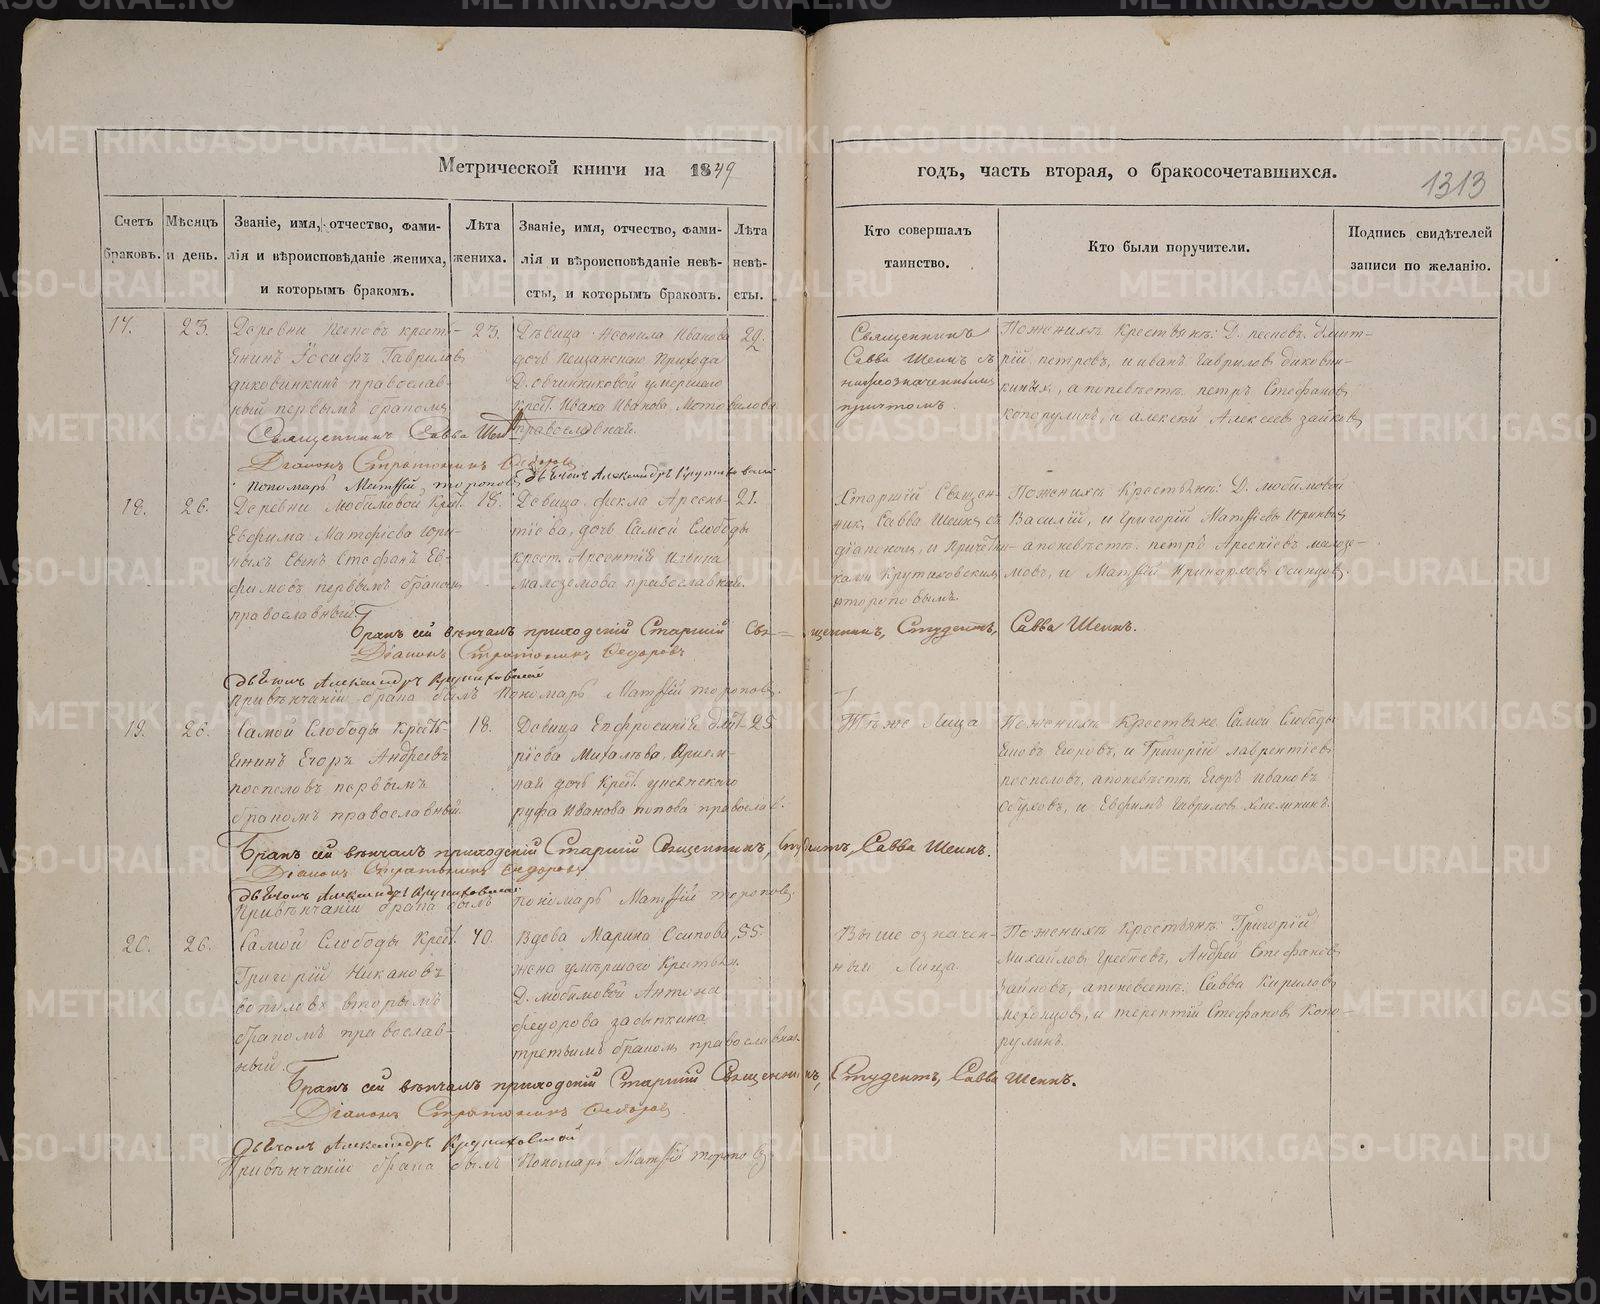 Метрической книги на 1849
годъ, часть вторая, о бракосочетавшихся.
1313
Счетъ браковъ.
Мѣсяцъ и день.
Званіе, имя, отчество, фами-
лія и вѣроисповѣданіе жениха,
и которымъ бракомъ.
Лѣта жениха.
Званіе, имя, отчество, фами-
лія и вѣроисповѣданіе невѣ-
сты, и которымъ бракомъ.
Лѣта невѣ-
сты.
Кто совершалъ
таинство.
Кто были поручители.
Подпись свидѣтелей
записи по желанію.
17.
23.
Деревни Песковъ крестъ-
янинъ Іосифъ Гавриловъ
диковинкинъ православ-
ный первымъ бракомъ
23.
Дѣвица Неонила Иванова
дочь Песчанскаго Прихода
Д. Овчинниковой умершаго
Крест. Ивана Иванова Мотовилова
православная.
22.
Священникъ
Савва Шеинъ съ
нижеозначеннымъ
причтомъ.
Поженихѣ Крестьянѣ: Д. песковъ Дмит-
рій петровъ, и иванъ Гавриловъ дикови-
кины, а поневѣстѣ петръ Стефановъ
копорулинъ, и алексѣй Алексѣевъ зайковъ
Священникъ Савва Шеинъ
Діаконъ Стратоникъ Федоровъ
Пономарь Матѳій тороповъ
дьячокъ Александръ Крутиховскій
18.
26.
Деревни Любимовой Крест.
Евфима Матфіева Юри-
ныхъ сынъ Стефанъ Ев-
фимовъ первымъ бракомъ
православный
18.
Девица фекла Арсень-
тіева, дочь Самой Слободы
крест. Арсентія Ильина
малоземова православная.
21.
Старшій Священ-
никъ Савва Шеинъ съ
діакономъ, и Причетни-
ками Крутиховскимъ
и тороповымъ.
Поженихѣ Крестьянѣ: Д. любимовой
Василій, и Григорій Матфіевы Юрины
а поневѣстѣ петръ Арсеніевъ малозе-
мовъ, и Матѳій Кринарховъ осинцовъ.
Бракъ сей вѣнчалъ приходскій Старшій Священникъ, Студентъ, Савва Шеинъ.
Діаконъ Стратоникъ Федоровъ
дьячокъ Александръ Крутиховскій
Привѣнчаніи брака былъ Пономарь Матѳій тороповъ.
19.
26.
Самой Слободы Кресть-
янинъ Егоръ Андреевъ
поспеловъ первымъ
бракомъ православный.
18.
Девица Евфросинія Дмит-
ріева Михалева, Пріем-
ная дочь Крест.
руфа Иванова попова православ.
25
Тѣже Лица
Поженихѣ Крестьяне Самой Слободы
Егоровъ, и Григорій лаврентіевъ
поспеловъ, апоневѣстѣ, Егоръ Ивановъ
Обуховъ, и Евфимъ Гавриловъ
Бракъ сей вѣнчалъ приходскій Старшій Священникъ, Студентъ, Савва Шеинъ.
Діаконъ Стратоникъ Федоровъ
дьячокъ Александръ Крутиховскій
Привѣнчаніи брака былъ пономарь Матѳій тороповъ.
20.
26.
Самой Слободы Крест.
Григорій Никановъ
вопиловъ вторымъ
бракомъ православ-
ный.
40.
Вдова Марина Осипова,
жена умершаго Крестьян.
Д. любимовой Антона
федорова засыпкина
третьимъ бракомъ православная
55.
Вышеозначен-
ныи Лица.
Поженихѣ Крестьянѣ: Григорій
Михайловъ Гребневъ, Андрей Стефановъ
Зайковъ, апоневестѣ Савва Кириловъ
мехонцовъ, и терентій Стефановъ Копо-
рулинъ.
Бракъ сей вѣнчалъ приходскій Старшій Священникъ, Студентъ, Савва Шеинъ.
Діаконъ Стратоникъ Федоровъ
дьячокъ Александръ Крутиховской
Привѣнчаніи брака былъ Пономарь Матѳій тороповъ
METRIKI.GASO-URAL.RU